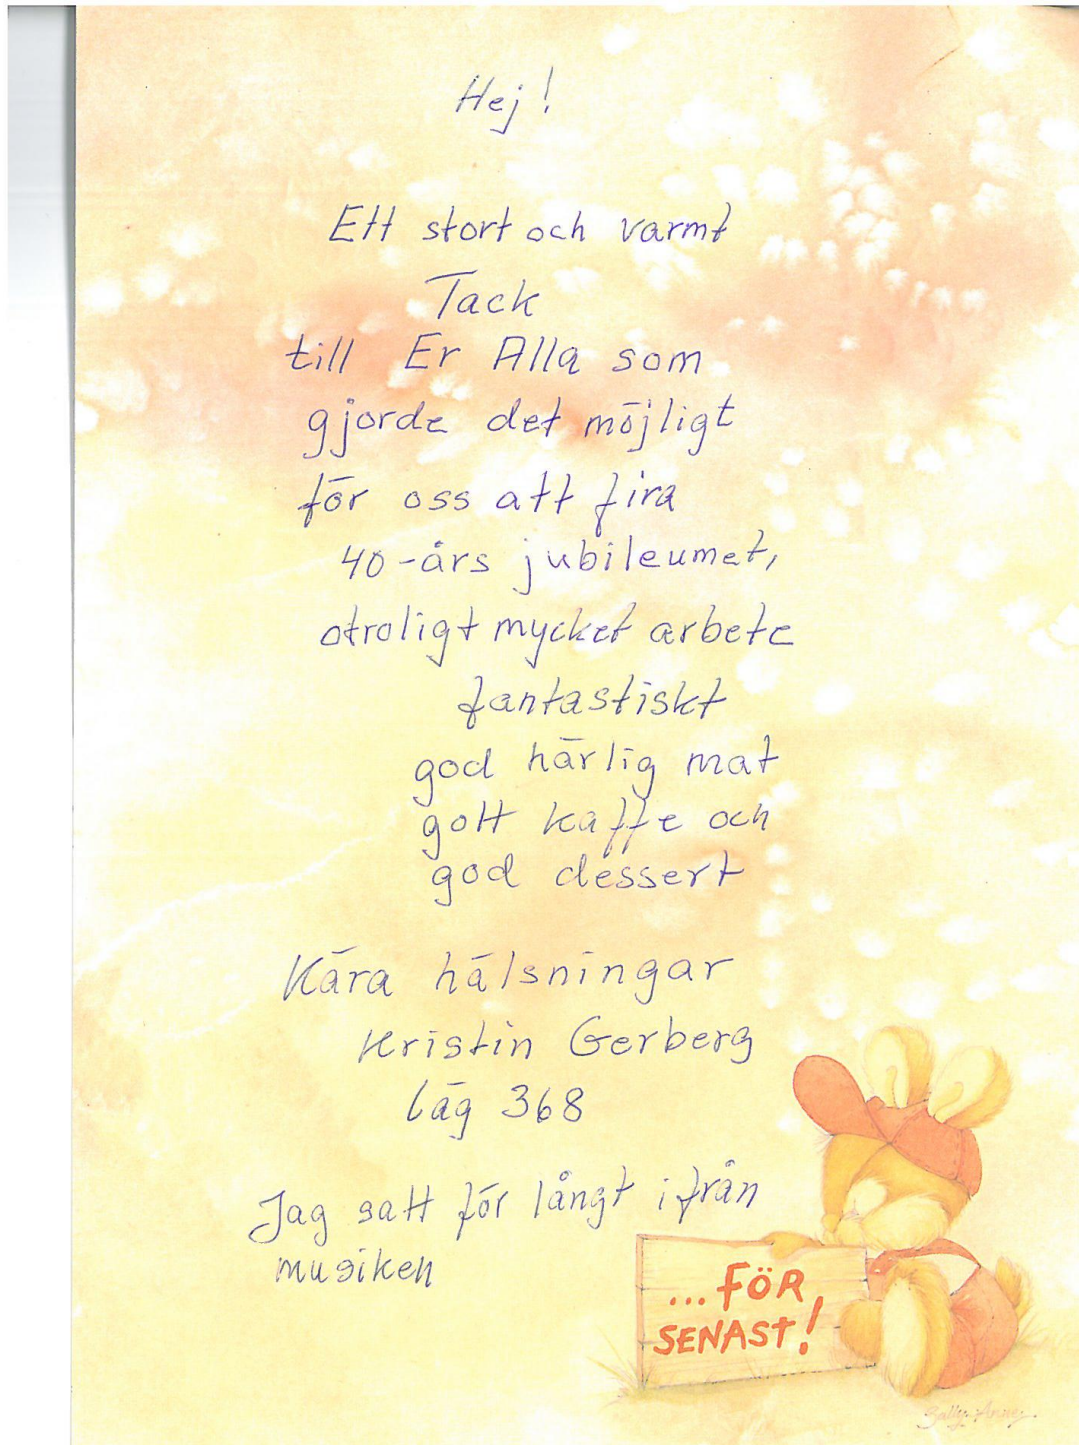 Hej!
Ett stort och varmt
Tack
till Er Alla som
gjorde det möjligt
för oss att fira
40-års jubileumet,
otroligt mycket arbete
fantastiskt
god härlig mat
gott kaffe och
god dessert
Kära hälsningar
Kristin Gerberg
läg 368
Jag satt för långt ifrån
musiken
...FÖR
SENAST!
Sally Anne